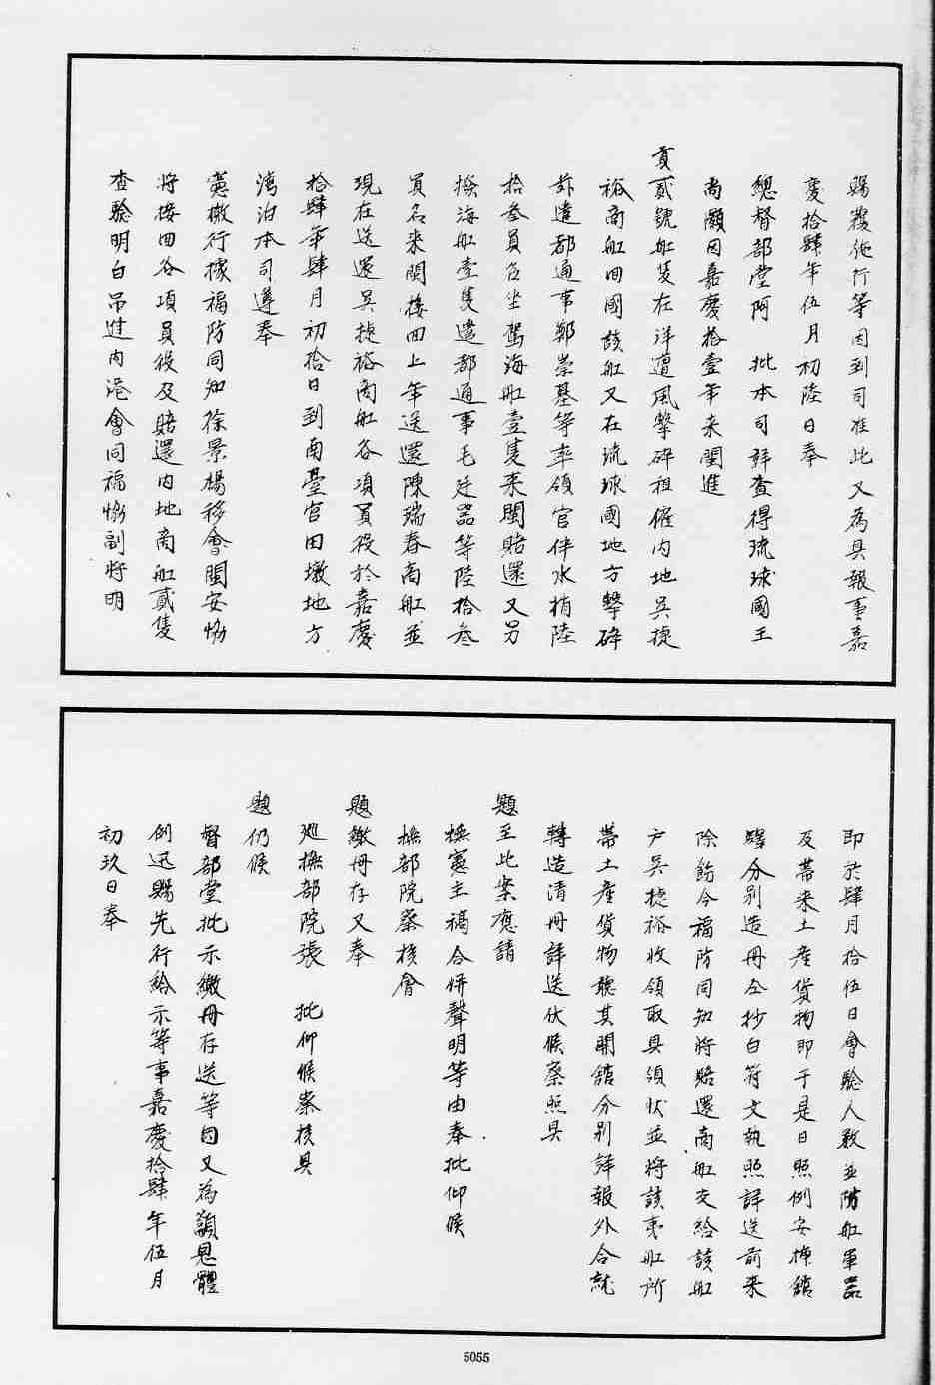 賜覆施行等因到司准此又為具報事嘉
慶拾肆年伍月初陸日奉
總督部堂阿　批本司詳查得琉球國王
尚灝因嘉慶拾壹年來閩進
貢貳號船隻在洋遭風擊碎租僱內地吳捷
裕商船回國該船又在琉球國地方擊碎
玆遣都通事鄭崇基等率領官伴水梢陸
拾叁員名坐駕海船壹隻來閩賠還又另
撥海船壹隻遣都通事毛廷器等陸拾叁
員名來閩接回上年送還陳瑞春商船並
現在送還吳捷裕商船各項員役於嘉慶
拾肆年肆月初拾日到南臺官田墩地方
灣泊本司遵奉
憲檄行據福防同知徐景楊移會閩安協
將接回各項員役及賠還內地商船貳隻
查驗明白吊進內港會同福協副將明
即於肆月拾伍日會驗人數並防船軍器
及帶來土產貨物即于是日照例安揷館
驛分別造冊仝抄白符文執照詳送前來
除飭令福防同知將賠還商船交給該船
戶吳捷裕收領取具領狀並將該夷船所
帶土產貨物聽其開館分別詳報外合就
轉造清冊詳送伏候察照具
題至此案應請
撫憲主稿合併聲明等由奉批仰候
撫部院察核會
題繳冊存又奉
巡撫部院張　批仰候察核具
題仍候
督部堂批示繳冊存送等因又為籲恩體
例迅賜先行給示等事嘉慶拾肆年伍月
初玖日奉
5055